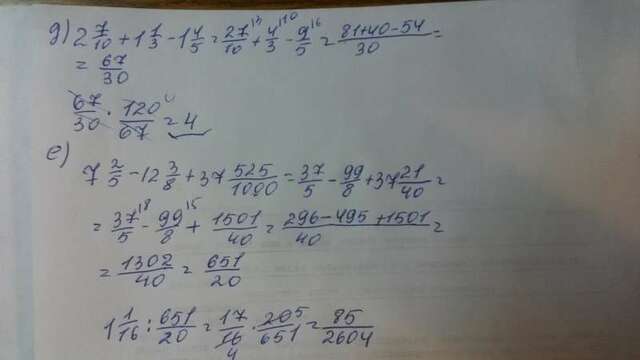 д) 2 7/10 + 1 1/3 - 1 4/5 = 27/10 ⁽³ + 4/3 ⁽¹⁰ - 9/5 ⁽⁶ = (81+40-54)/30 =
= 67/30
67/30 · 120/67 = 4
е)
7 2/5 - 12 3/8 + 37 525/1000 = 37/5 - 99/8 + 37 21/40 =
= 37/5 ⁽⁸ - 99/8 ⁽⁵ + 1501/40 = (296-495+1501)/40 =
= 1302/40 = 651/20
1 1/16 : 651/20 = 17/16 4 · 20 5/651 = 85/2604